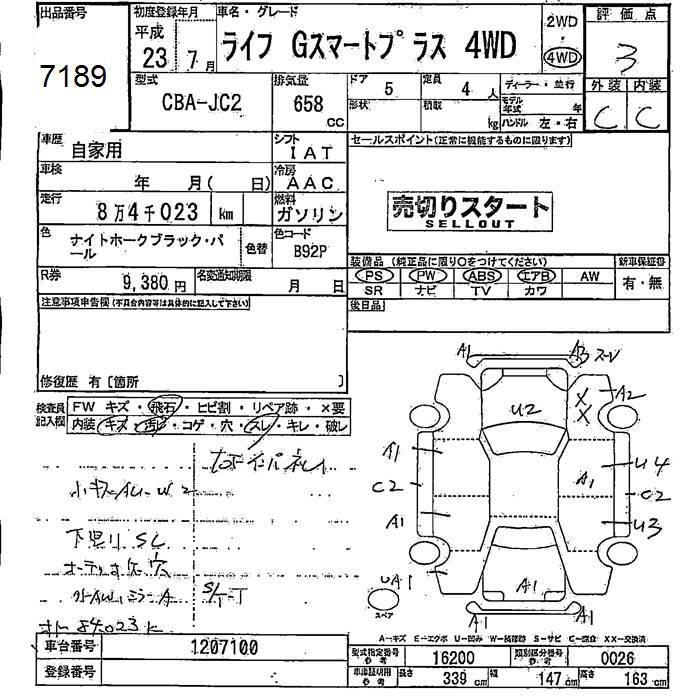 出品番号
7189
初度登録年月
平成
23 7月
車名・グレード
ライフ Gスマートプラス 4WD
2WD
・
4WD
評価点
3
外装 内装
C C
型式
CBA-JC2
排気量
658
cc
ドア
5
定員
4 人
形状
積載
kg
ディーラー・並行
モデル年式 年
ハンドル 左・右
車歴
自家用
シフト
IAT
車検
年 月( 日)
冷房
AAC
走行
8万4千023 km
燃料
ガソリン
色
ナイトホークブラック・パール
色替
色コード
B92P
R券
9,380円
名変通知期限
月 日
セールスポイント(正常に機能するものに限ります)
売切りスタート
SELLOUT
装備品 (純正品に限り○をつけてください)
新車保証書
PS PW ABS エアB AW
有・無
SR ナビ TV カワ
後日品
注意事項申告欄(不具合内容等は具体的に記入して下さい)
修復歴 有〔箇所 〕
検査員記入欄
FW キズ・飛石・ヒビ割・リペア跡・×要
内装 キズ・汚レ・コゲ・穴・スレ・キレ・破レ
小キズAU-W2
下回り SC
A
84023k
A1 A3
U2
X
X
A2
A1
C2
A1
UA1
A1
U4
C2
U3
A1
A1
A1
スペア
A-キズ E-エクボ U-凹み W-補修跡 S-サビ C-腐食 XX-交換済
車台番号
1207100
登録番号
型式指定番号
参考
16200
類別区分番号
参考
0026
車庫証明用
参考
長さ
339 cm
幅
147 cm
高さ
163 cm